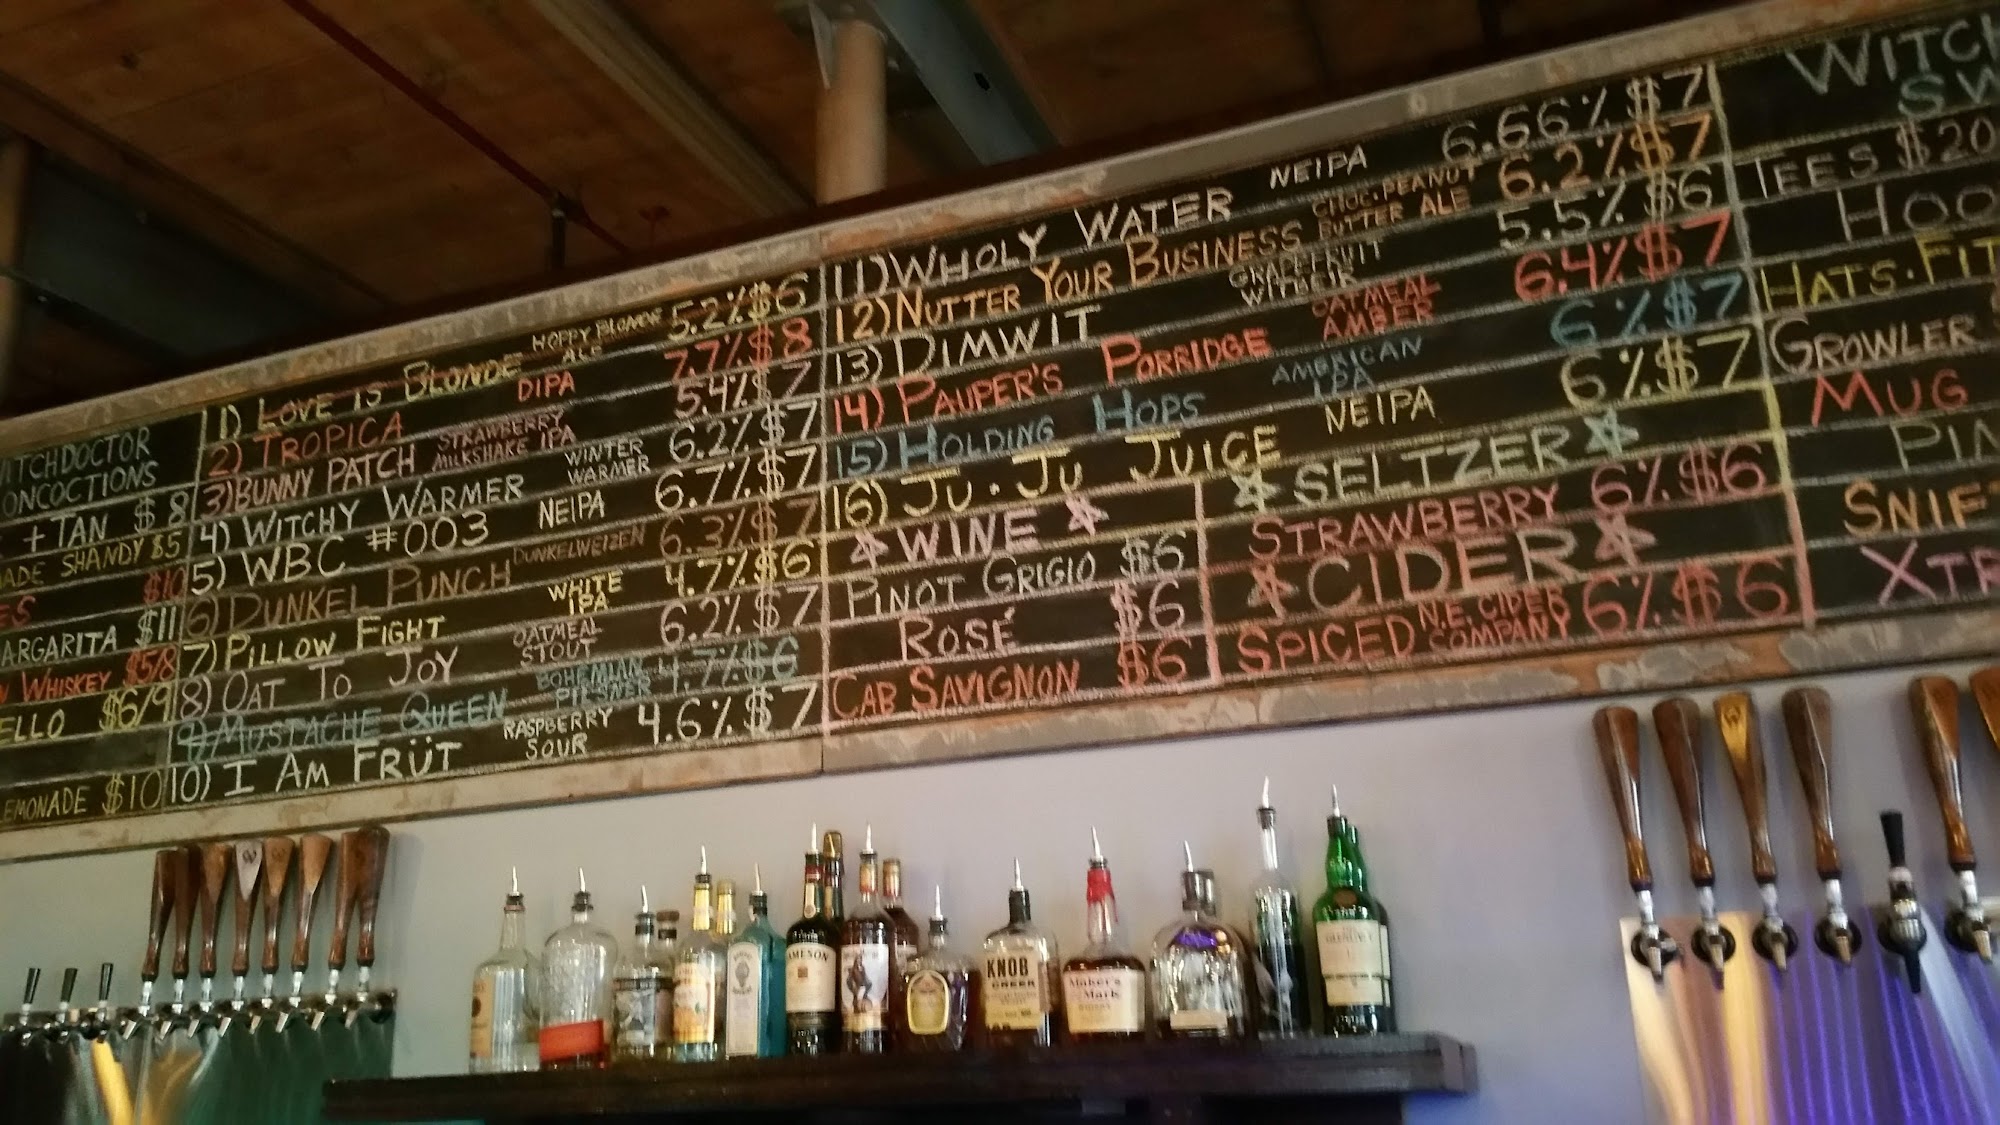 WITCHDOCTOR
CONCOCTIONS
+ TAN $8
ADE SHANDY $5
ES $10
ARGARITA $11
N WHISKEY $5/8
ELLO $6/9
EMONADE $10
1) LOVE IS BLONDE HOPPY BLONDE ALE 5.2% $6
2) TROPICA DIPA 7.7% $8
3) BUNNY PATCH STRAWBERRY MILKSHAKE IPA 5.4% $7
4) WITCHY WARMER WINTER WARMER 6.2% $7
5) WBC #003 NEIPA 6.7% $7
6) DUNKEL PUNCH DUNKELWEIZEN 6.3% $7
7) PILLOW FIGHT WHITE IPA 4.7% $6
8) OAT TO JOY OATMEAL STOUT 6.2% $7
9) MUSTACHE QUEEN BOHEMIAN PILSNER 4.7% $6
10) I AM FRÜT RASPBERRY SOUR 4.6% $7
11) WHOLY WATER NEIPA 6.66% $7
12) NUTTER YOUR BUSINESS CHOC. PEANUT BUTTER ALE 6.2% $7
13) DIMWIT GRAPEFRUIT WITBEIR 5.5% $6
14) PAUPER'S PORRIDGE OATMEAL AMBER 6.4% $7
15) HOLDING HOPS AMERICAN IPA 6% $7
16) JU·JU JUICE NEIPA 6% $7
WINE
PINOT GRIGIO $6
ROSÉ $6
CAB SAVIGNON $6
SELTZER
STRAWBERRY 6% $6
CIDER
SPICED N.E. CIDER COMPANY 6% $6
WITCH
SW
TEES $20
HOO
HATS·FIT
GROWLER
MUG
PIN
SNIF
XTR
JAMESON
KNOB
CREEK
Maker's
Mark